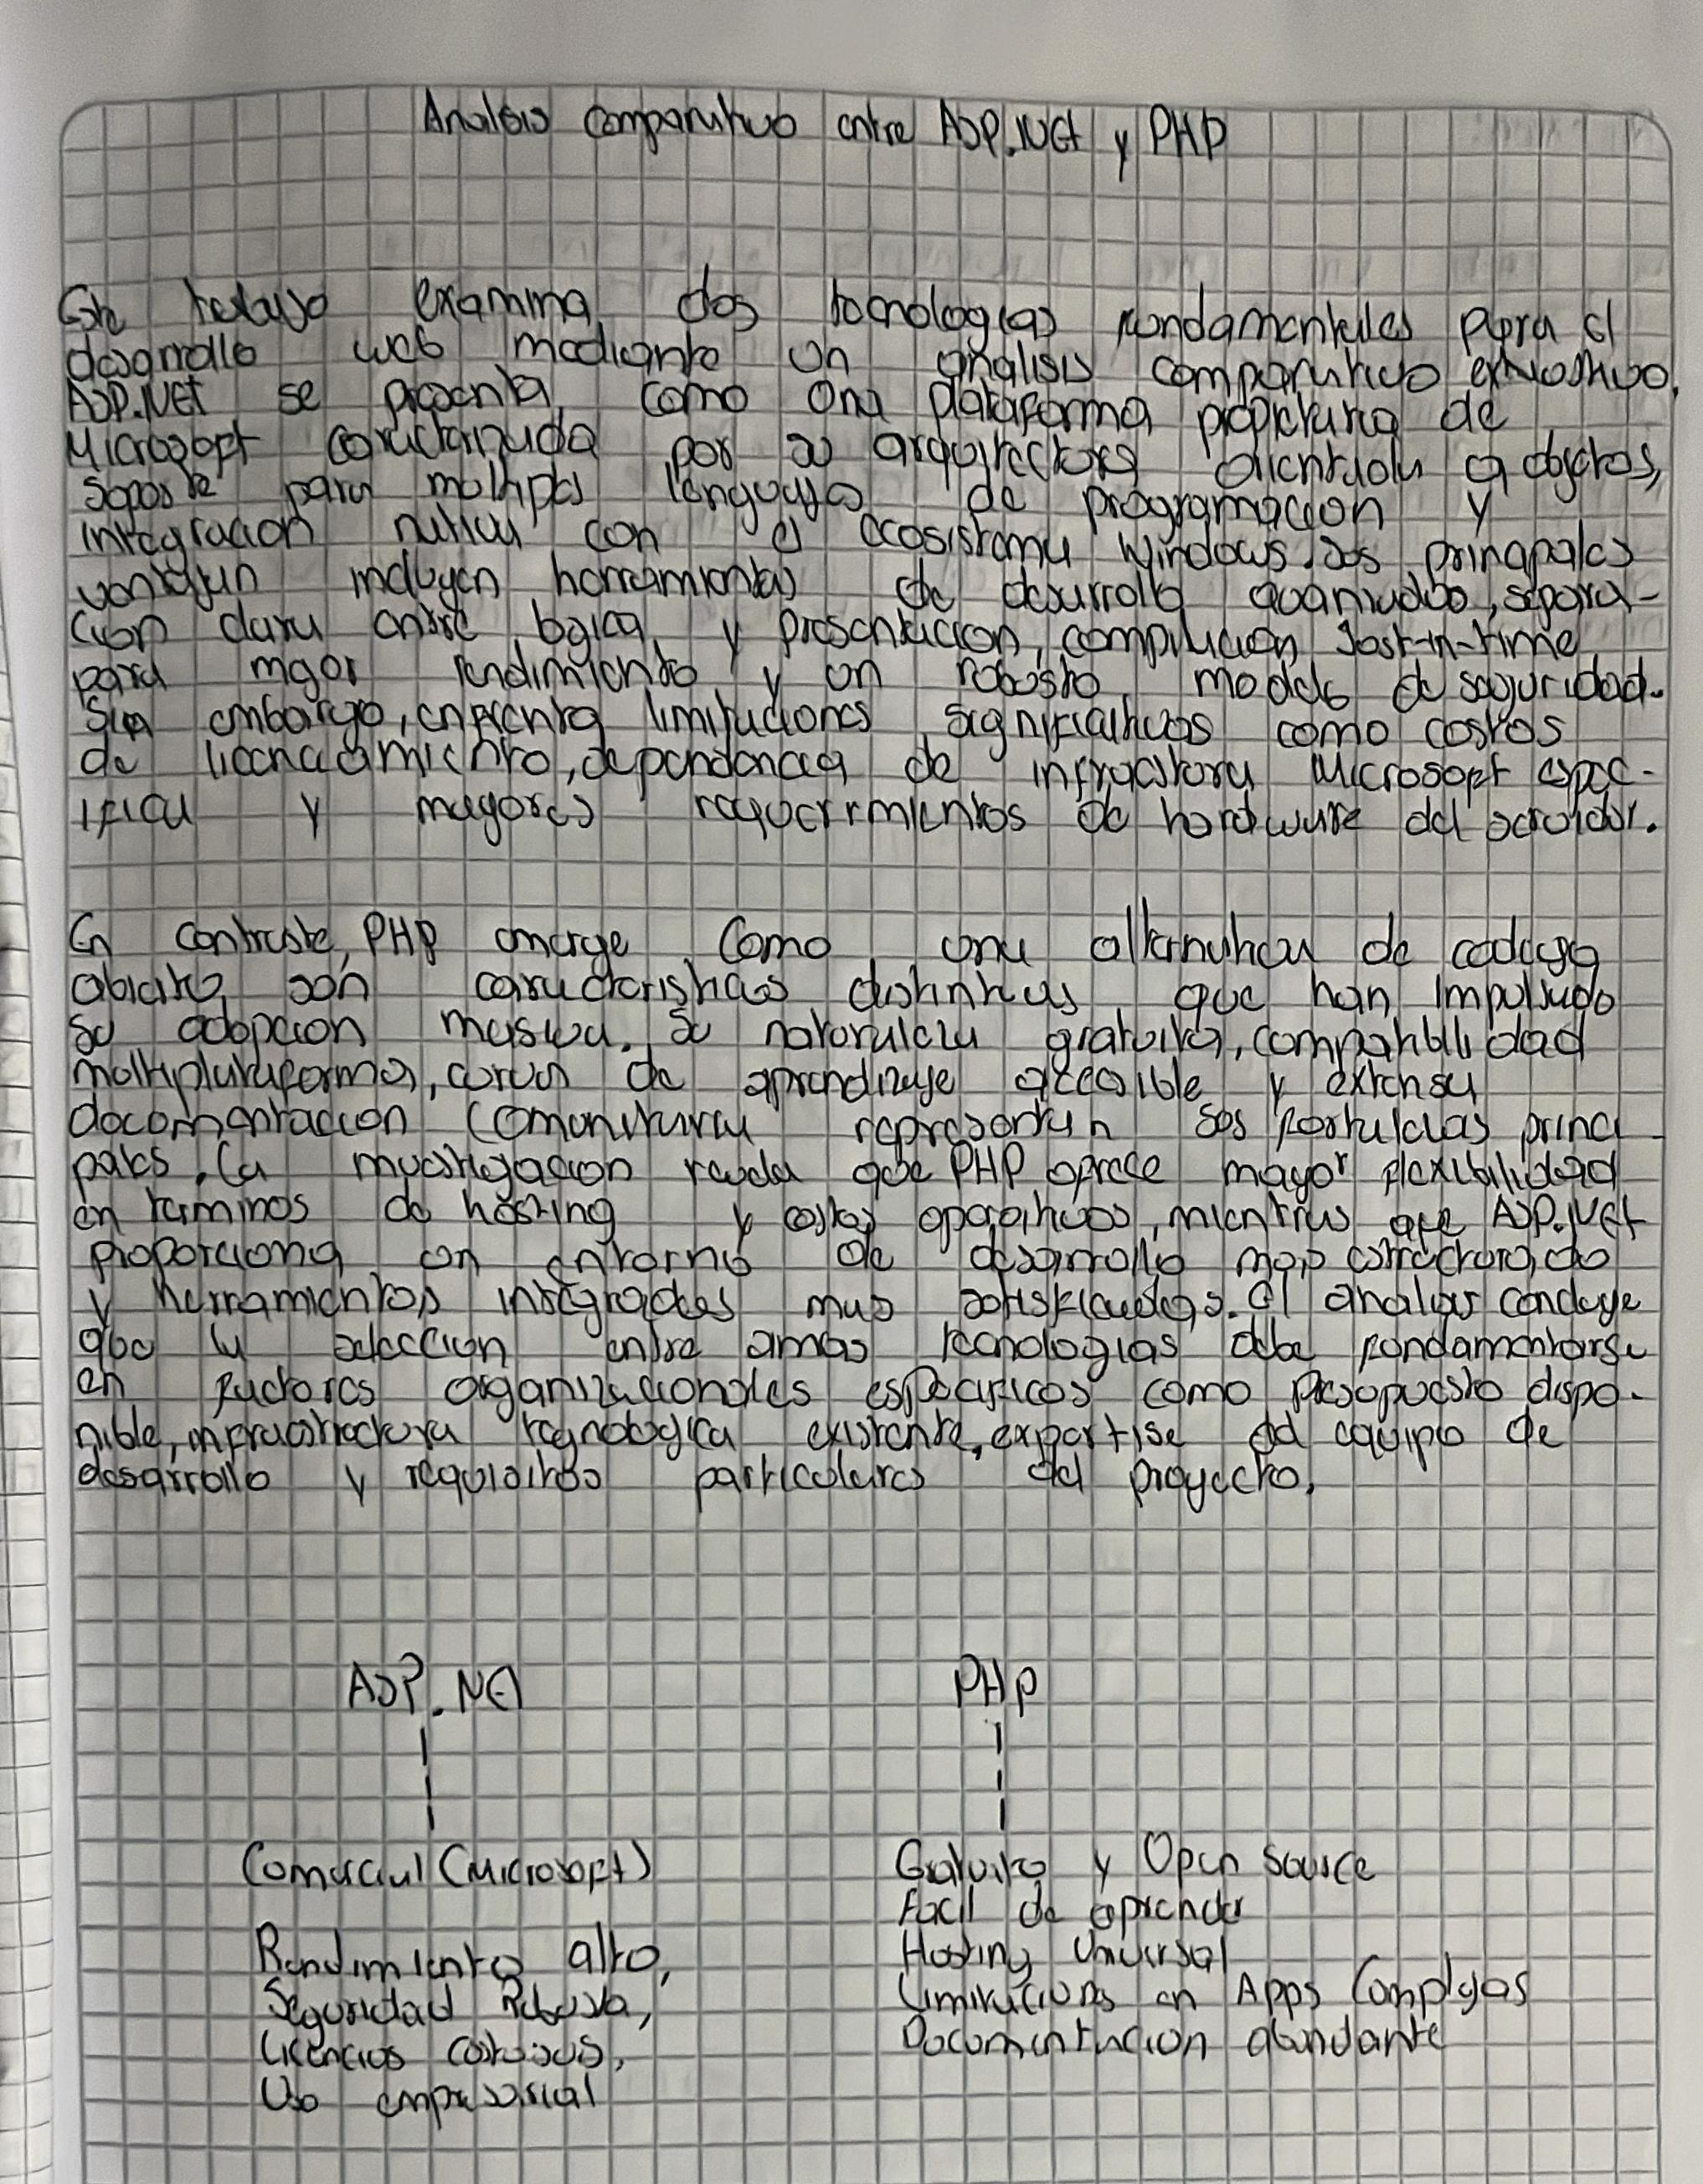 Analisis comparativo entre ASP.NET y PHP
Este trabajo examina dos tecnologias fundamentales para el
desarrollo web mediante un analisis comparativo exhaustivo.
ASP.NET se presenta como una plataforma propietaria de
Microsoft caracterizada por su arquitectura orientada a objetos,
soporte para multiples lenguajes de programacion y
integracion nativa con el ecosistema Windows. Sus principales
ventajan incluyen herramientas de desarrollo avanzadas, separa-
cion clara entre logica y presentacion, compilacion Just-in-time
para mejor rendimiento y un robusto modelo de seguridad.
Sin embargo, enfrenta limitaciones significativas como costos
de licenciamiento, dependencia de Microsoft espec-
ifica y mayores requerimientos de hardware del servidor.
En contraste, PHP emerge como una alternativa de codigo
abierto son caracteristicas distintivas que han impulsado
su adopcion masiva. Su naturaleza gratuita, compatibilidad
multiplataforma, curva de aprendizaje accesible y extensa
documentacion comunitaria representan sus fortalezas princi
pales. La investigacion revela que PHP ofrece mayor flexibilidad
en terminos de hosting y costos operativos, mientras que ASP.NET
proporciona un entorno de desarrollo mas estructurado
y herramientas integradas mas sofisticadas. El analisis concluye
que la seleccion entre amas tecnologias debe fundamentarse
en factores organizacionales especificos como presupuesto dispo-
nible, infraestructura tegnologica existente, expertise del equipo de
desarrollo y requisitos particulares del proyecto.
ASP.NET PHP
Comercial (Microsoft) Gratuito y Open Source
Facil de aprender
Rendimiento alto, Hosting Universal
Seguridad Robusta, Limitaciones en Apps Complejas
Licencias costosas, Documentacion abundante
Uso empresarial